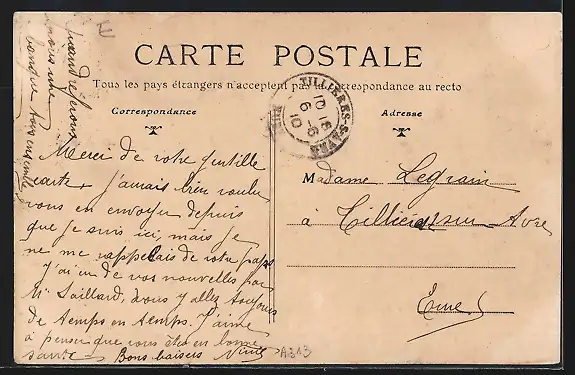 CARTE POSTALE
Tous les pays étrangers n'acceptent pas la correspondance au recto
Correspondance
Adresse
Merci de votre gentille
carte, j'aurais bien voulu
vous en envoyer depuis
que je suis ici, mais je
ne me rappelais de votre pays
J'ai eu de vos nouvelles par
Mr Saillard, vous y allez toujours
de temps en temps. J'aime
à penser que vous êtes en bonne
santé
Bons baisers
Quand ferons
nous une
ensemble
TILLIERES-S-AVRE
10 15
6 - 6
10
EURE
Madame Legrain
à Tillières sur Avre
Eure
A313